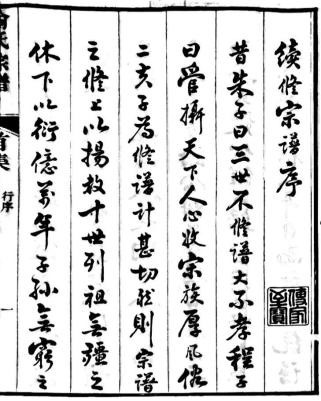 續修宗譜序
昔朱子曰三世不修譜大不孝程子
曰管攝天下人心收宗族厚風俗
二夫子為修譜計甚切然則宗譜
之修上以揚數十世列祖無疆之
休下以衍億萬年子孫無窮之
傳家至寶
行序
一